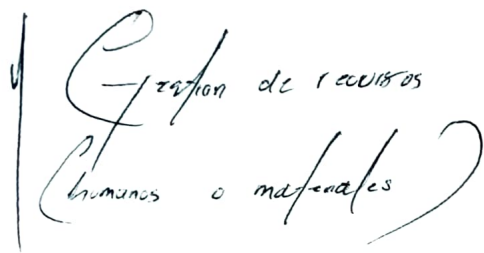 Gestion de recursos
(humanos o materiales)